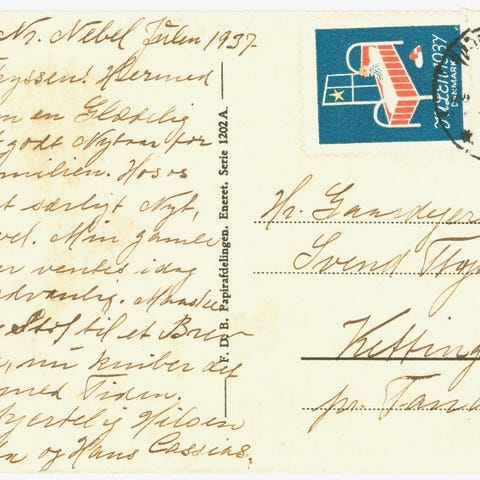 Nr. Nebel Julen 1937.
Hermed
en Glædelig
godt Nytaar for
amilien. Hos os
t særligt Nyt,
vel. Min gamle
ventes idag
dvanlig. Maaske
Stof til et Brev
, nu kniber det
med Tiden.
hjertelig Hilsen
og Hans Cassias.
F. D. B. Papirafdelingen. Eneret. Serie 1202 A.
JULEN 1937
DANMARK
Hr. Gaardejer
Svend
Ketting
pr. Tand